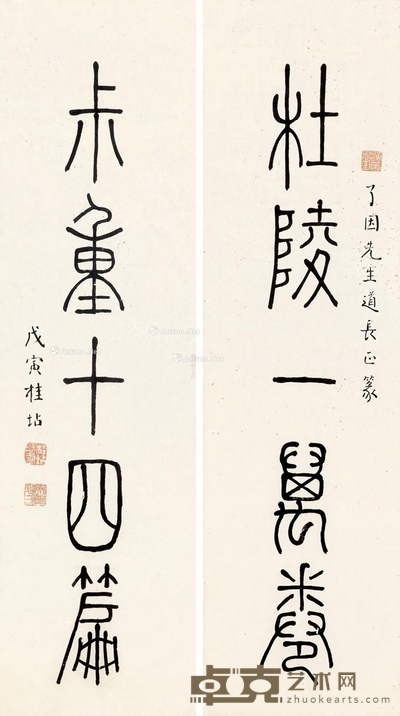 了因先生道長正篆
杜陵一萬卷
尗重十四篇
戊寅桂坫
卓克艺术网
zhuokearts.com